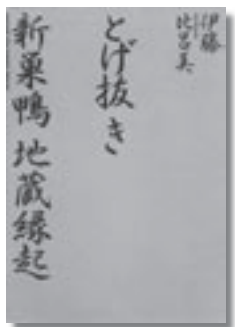 伊藤
比呂美
とげ抜き
新巣鴨地蔵縁起